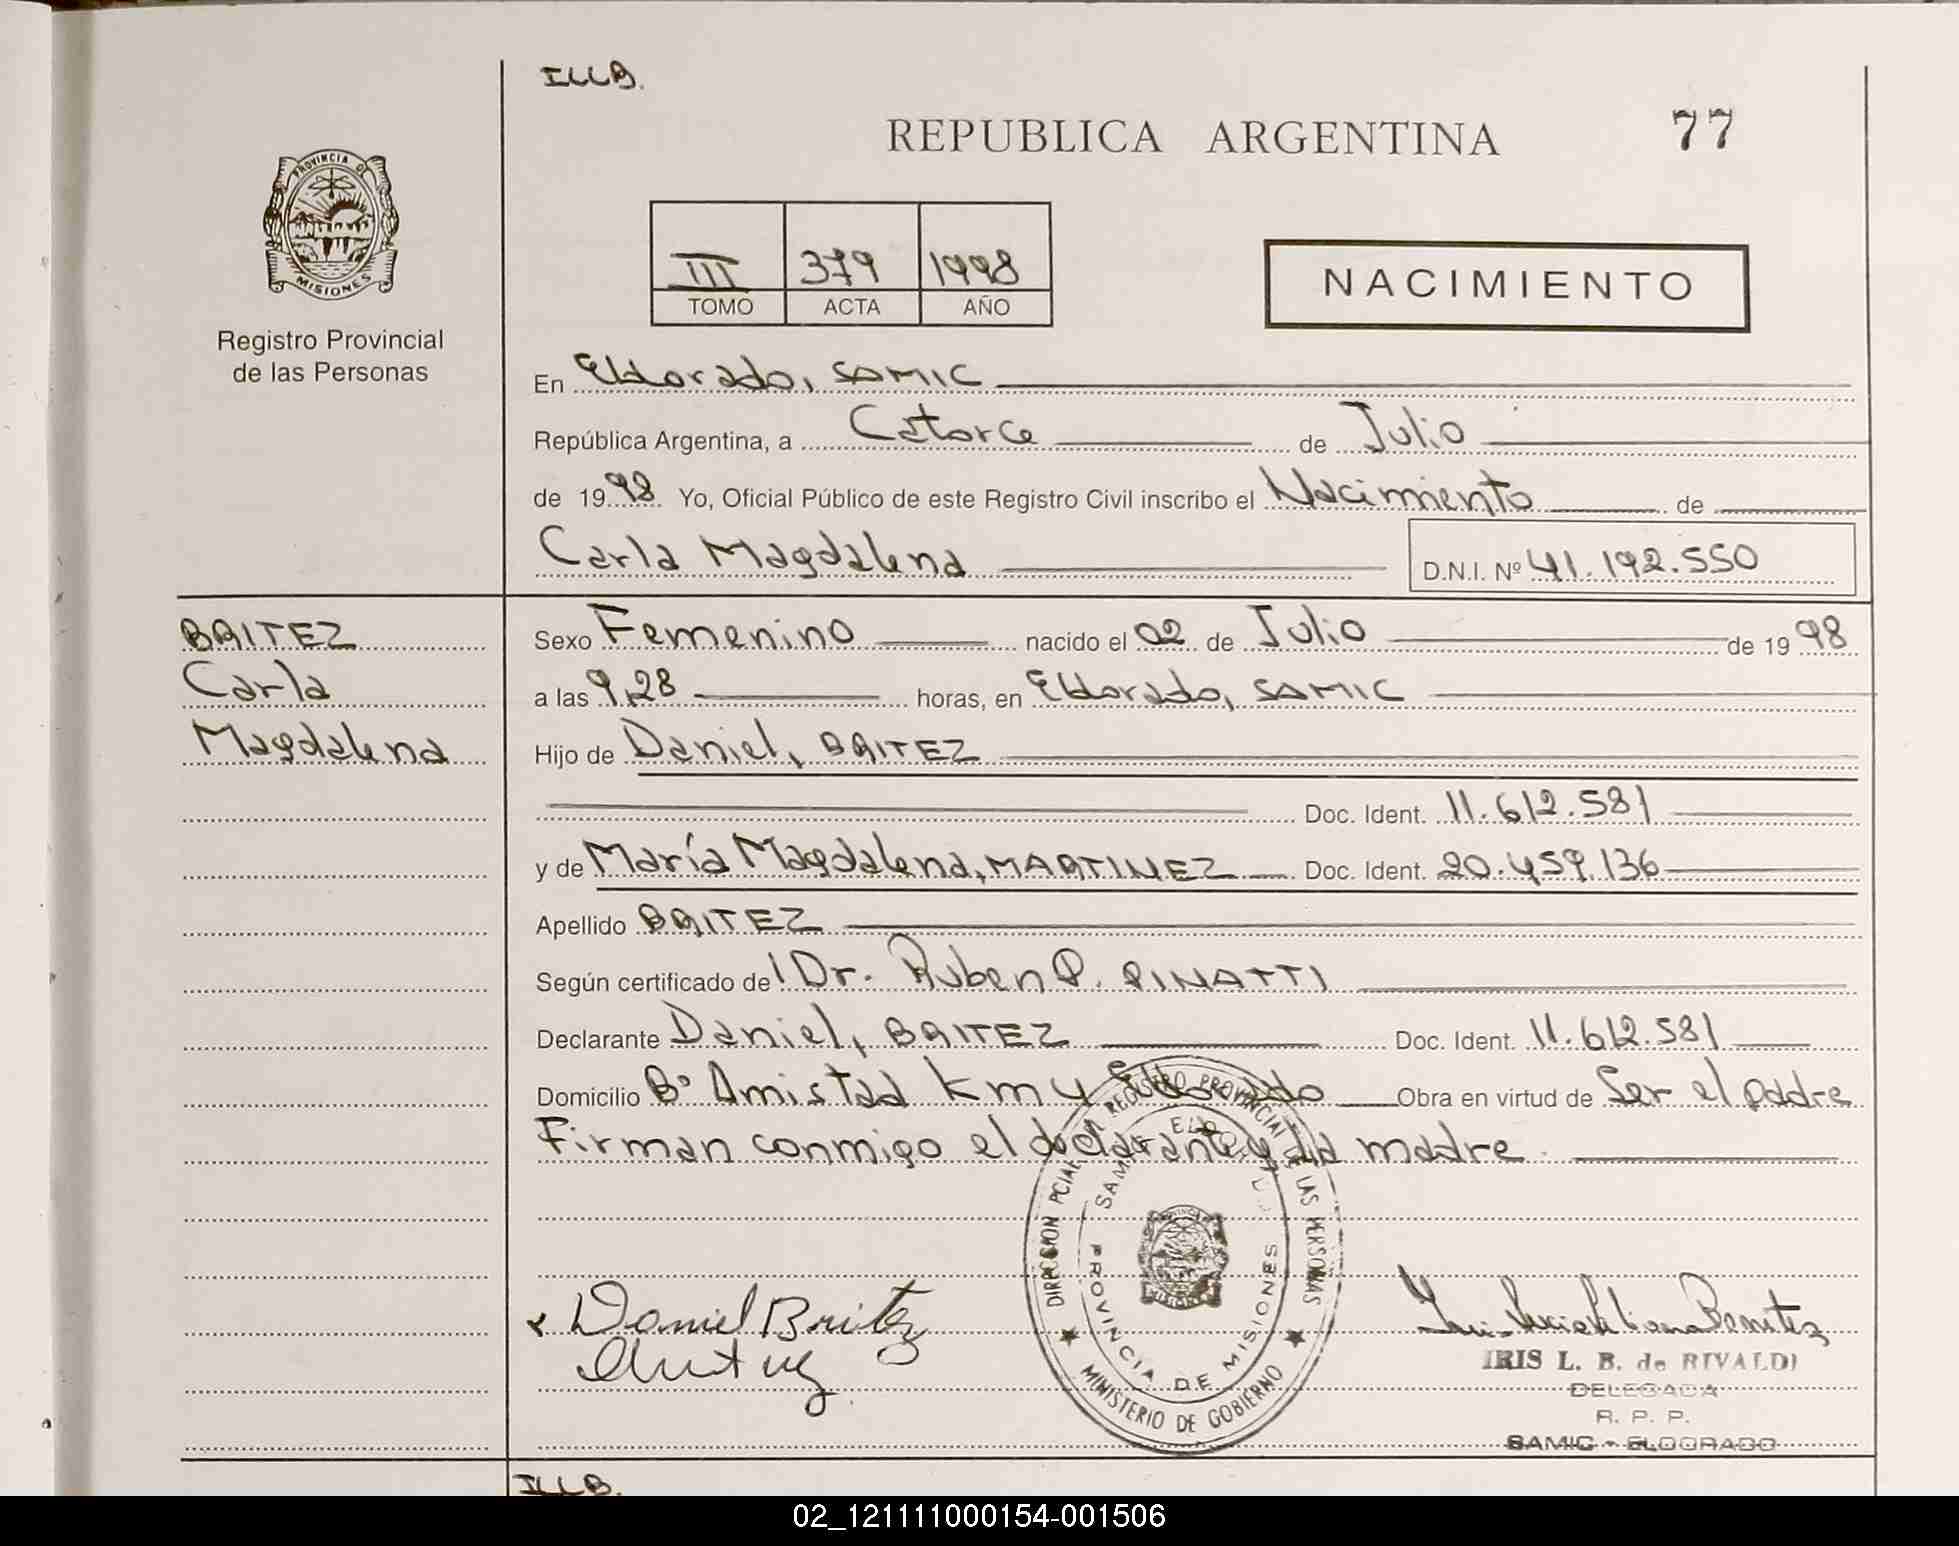 ILLB.
REPUBLICA ARGENTINA 77
PROVINCIA DE MISIONES
III 379 1998
TOMO ACTA AÑO
NACIMIENTO
Registro Provincial
de las Personas
En Eldorado, SAMIC
República Argentina, a Catorce de Julio
de 1998 Yo, Oficial Público de este Registro Civil inscribo el Nacimiento de
Carla Magdalena D.N.I. Nº 41.192.550
BRITEZ
Carla
Magdalena
Sexo Femenino nacido el 02 de Julio de 1998
a las 9,28 horas, en Eldorado, SAMIC
Hijo de Daniel, BRITEZ
Doc. Ident. 11.612.581
y de María Magdalena, MARTINEZ Doc. Ident. 20.459.136
Apellido BRITEZ
Según certificado del Dr. Ruben P. PINATTI
Declarante Daniel, BRITEZ Doc. Ident. 11.612.581
Domicilio Bº Amistad Km 4 Eldorado Obra en virtud de Ser el padre
Firman conmigo el declarante y la madre
DIRECCION PCIAL REGISTRO PROVINCIAL DE LAS PERSONAS
PROVINCIA DE MISIONES
MINISTERIO DE GOBIERNO
Daniel Britez
IRIS L. B. de RIVALDI
DELEGADA
R. P. P.
SAMIC - ELDORADO
ILLB.
02_121111000154-001506